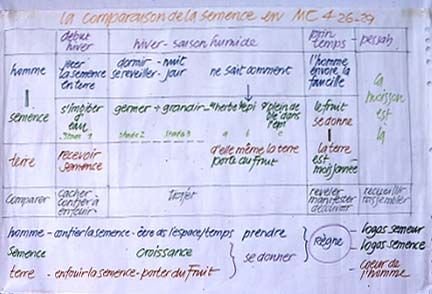 la comparaison de la semence en MC 4 26-29
début hiver
hiver - saison humide
prin temps - pessah
homme
jeter la semence en terre
dormir - nuit
se réveiller - jour
ne sait comment
l'homme envoie la faucille
la moisson est là
semence
s'imbiber d'eau
stade 1
germer + grandir
stade 2 stade 3
herbe épi
plein de blé dans l'épi
a b c
le fruit se donne
terre
recevoir semence
d'elle même la terre porte du fruit
la terre est moissonnée
comparer
cacher
confier à
enfouir
trajet
révéler
manifester
découvrir
recueillir
rassembler
homme - confier la semence - ère de l'espace/temps prendre
semence croissance
se donner
terre - enfouir la semence - porter du fruit
Règne
logos semeur
logos semence
coeur de l'homme